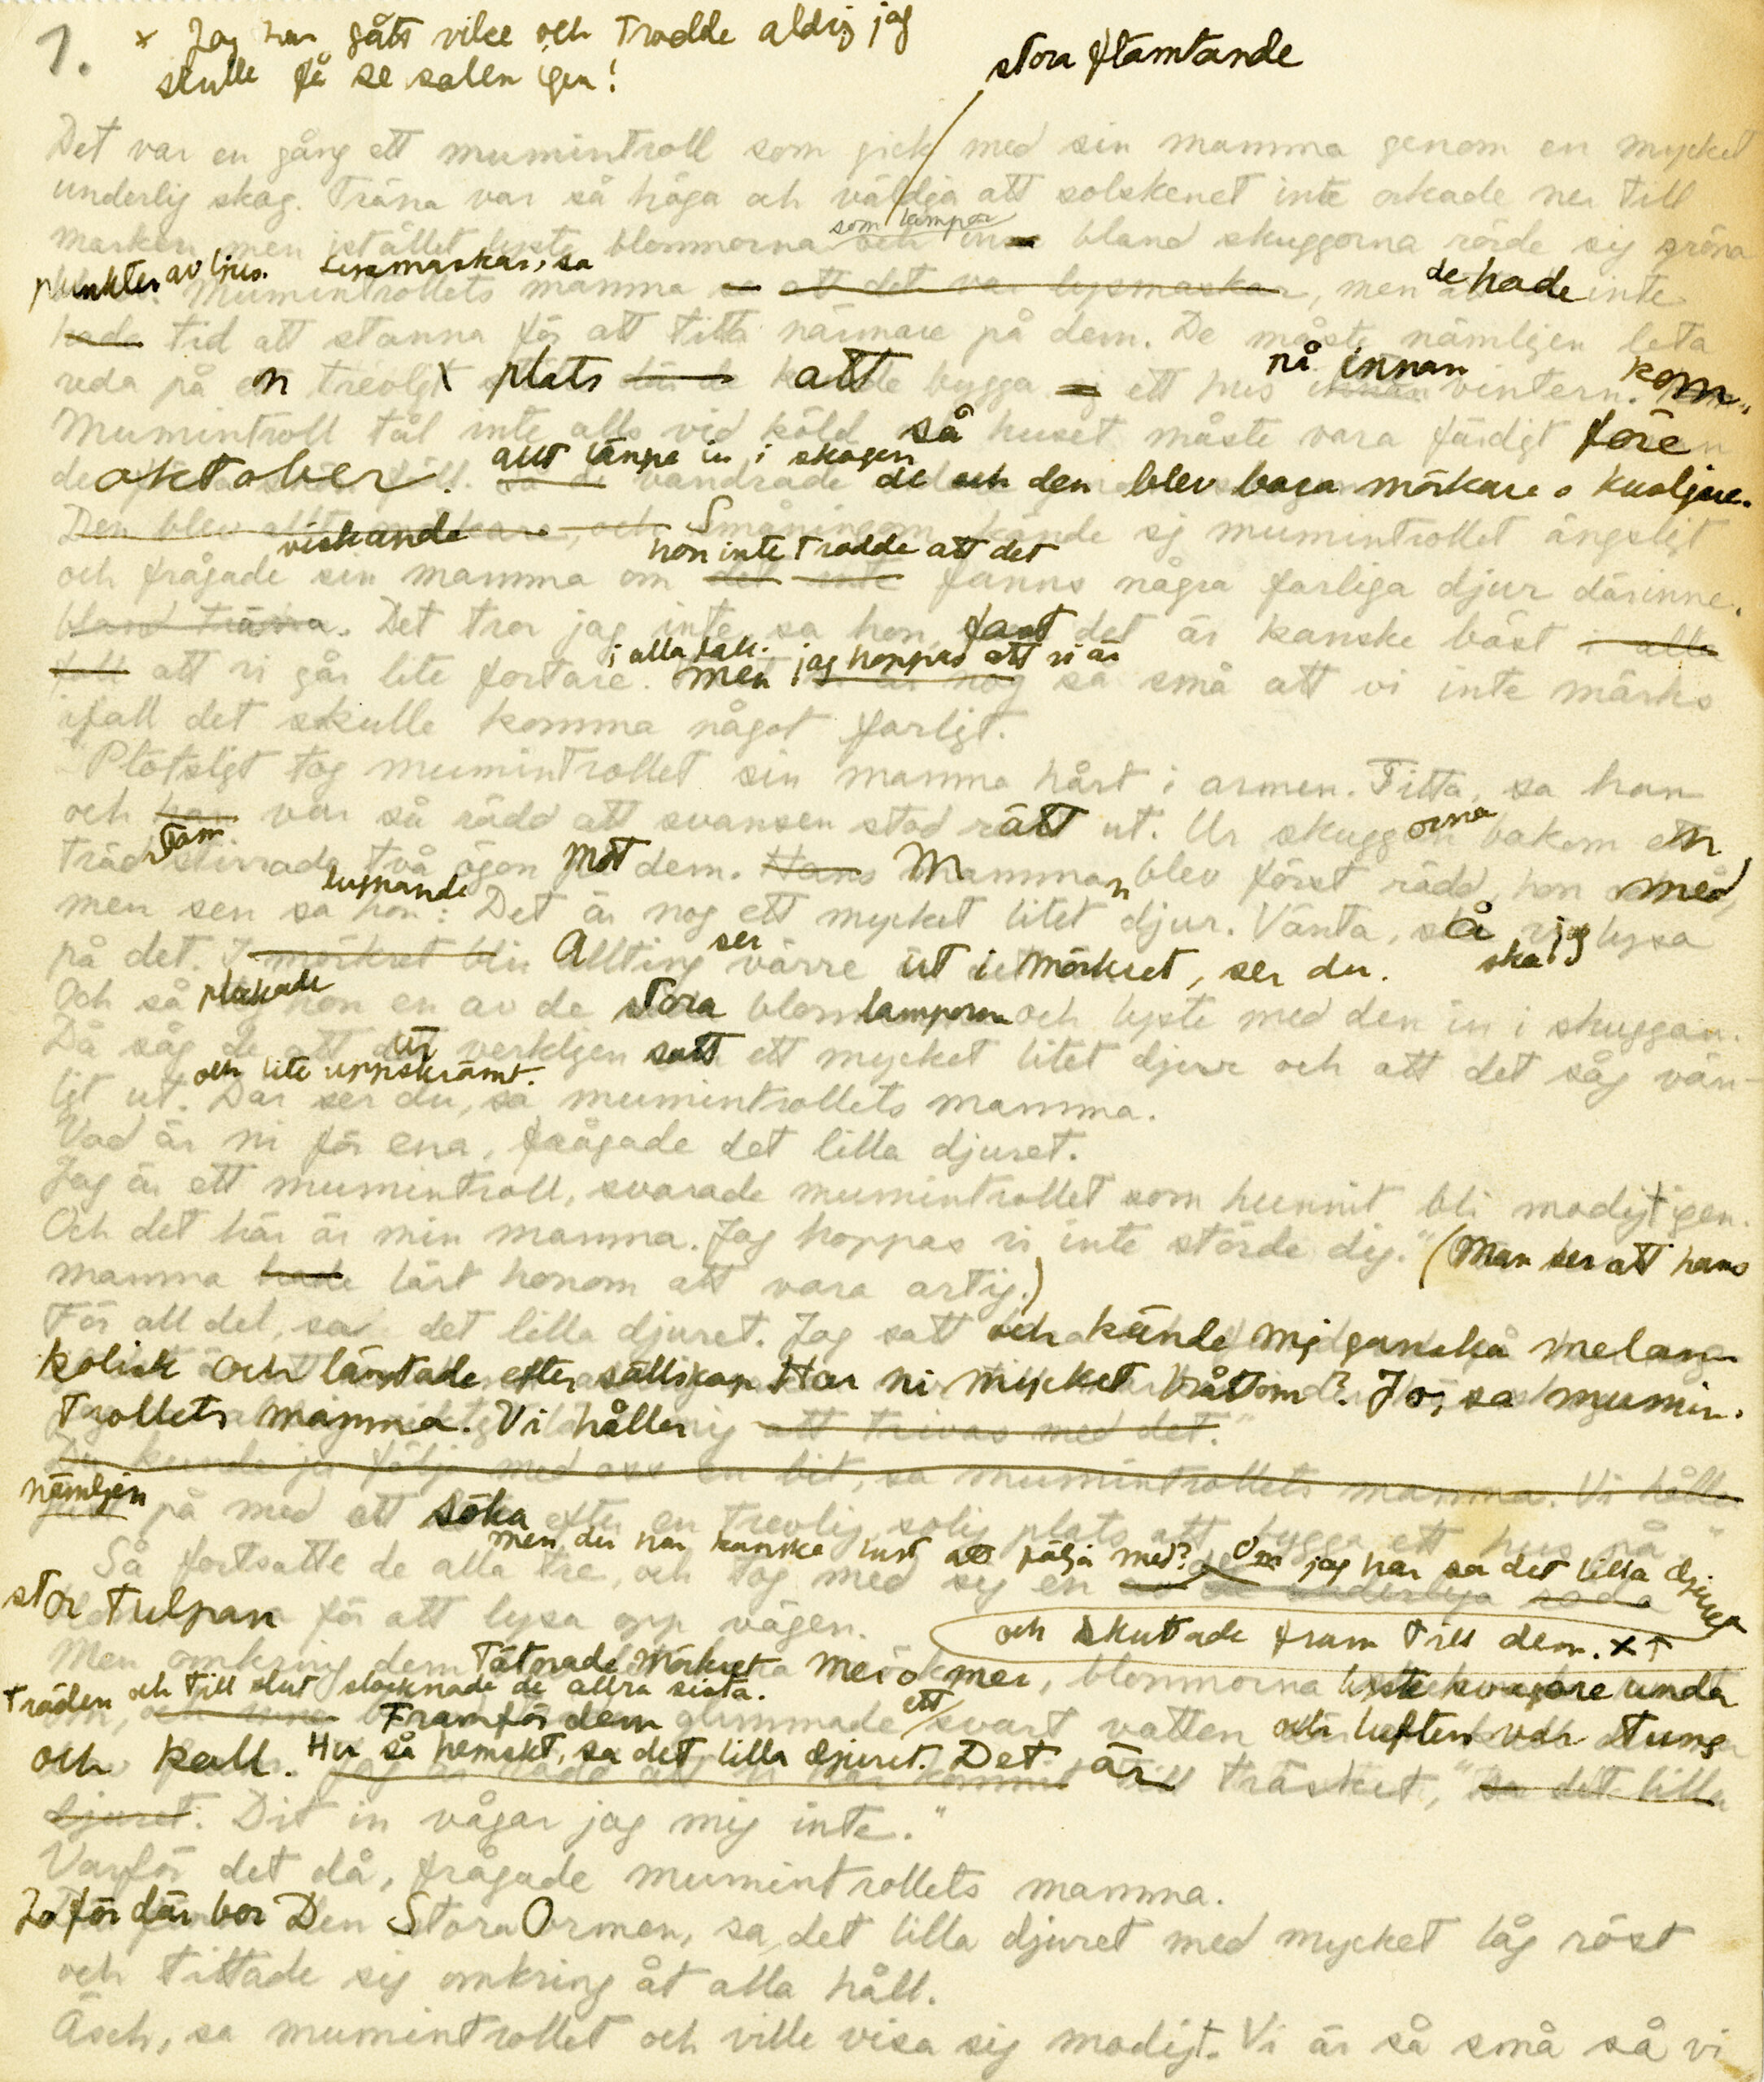 1.
x Jag har gått vilse och trodde aldrig jag
skulle få se solen igen!
stora flämtande
Det var en gång ett mumintroll som gick med sin mamma genom en mycket
underlig skog. Träna var så höga och väldiga att solskenet inte orkade ner till
som lampor
marken men istället lyste blommorna och inne bland skuggorna rörde sig gröna
punkter av ljus. Lysmaskar, sa
Mumintrollets mamma att det var lysmaskar, men de hade inte
hade tid att stanna för att titta närmare på dem. De måste nämligen leta
reda på en trevlig plats att bygga ett hus på innan vintern kom.
Mumintroll tål inte alls vid köld så huset måste vara färdigt före
oktober. allt längre in i skogen
vandrade de och den blev bara mörkare o kusligare.
Den blev och Småningom kände sig mumintrollet ängsligt
viskande hon inte trodde att det
och frågade sin mamma om det inte fanns några farliga djur därinne.
bland träna. Det tror jag inte, sa hon, fast det är kanske bäst i alla
i alla fall. jag hoppas att vi är
fall att vi går lite fortare. men nog så små att vi inte märks
ifall det skulle komma något farligt.
Plötsligt tog mumintrollet sin mamma hårt i armen. Titta, sa han
och han var så rädd att svansen stod rätt ut. Ur skuggorna bakom en
trädstam stirrade två ögon mot dem. Hans Mamman blev först rädd, hon med,
lugnande
men sen sa hon: Det är nog ett mycket litet djur. Vänta, så ska jag lysa
på det. I mörkret blir Allting ser värre ut i mörkret, ser du.
Och så plockade hon en av de stora blomlamporna och lyste med den in i skuggan.
Då såg de att där verkligen satt ett mycket litet djur och att det såg vän-
och lite uppskrämt.
ligt ut. Där ser du, sa mumintrollets mamma.
Vad är ni för ena, frågade det lilla djuret.
Jag är ett mumintroll, svarade mumintrollet som hunnit bli modigt igen.
Och det här är min mamma. Jag hoppas vi inte störde dig." (Man ser att hans
mamma hade lärt honom att vara artig.)
För all del, sa det lilla djuret. Jag satt och kände mig ganska melan-
kolisk och längtade efter sällskap. Har ni mycket bråttom? Jo, sa mumin-
trollets mamma. Vi håller att trivas med det."
Du kunde ju följa med oss en bit, sa mumintrollets mamma. Vi håller
nämligen på med att söka efter en trevlig, solig plats att bygga ett hus på"
men du har kanske lust att följa med? Om jag har sa det lilla djuret
och skuttade fram till dem. x↑
Så fortsatte de alla tre, och tog med sig en av de underliga röda
stor tulpan för att lysa opp vägen.
Men omkring dem tätnade mörkret mer o mer, blommorna lyste svagare under
träden och till slut slocknade de allra sista.
Framför dem glimmade ett svart vatten och luften var tung
och kall. Hu så hemskt, sa det lilla djuret. Det är träsket," sa det lilla
djuret. Dit in vågar jag mig inte."
Varför det då, frågade mumintrollets mamma.
Jo för där bor Den Stora Ormen, sa det lilla djuret med mycket låg röst
och tittade sig omkring åt alla håll.
Äsch, sa mumintrollet och ville visa sig modigt. Vi är så små så vi